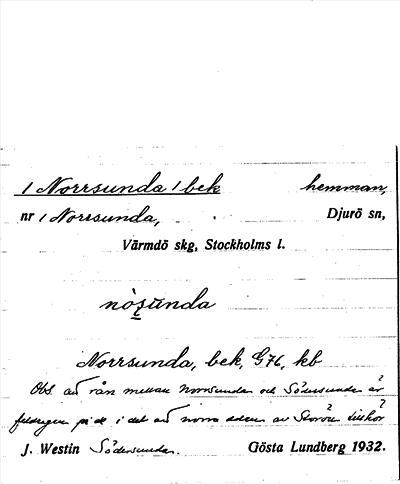 1 Norrsunda 1 bek hemman,
nr 1 Norrsunda, Djurö sn,
Värmdö skg, Stockholms l.
nòʂūnda
Norrsunda, bek, G76, kb
Obs. att rån mellan Norrsunda och Södersunda är
på i det att norra delen av Storön
J. Westin Södersunda. Gösta Lundberg 1932.